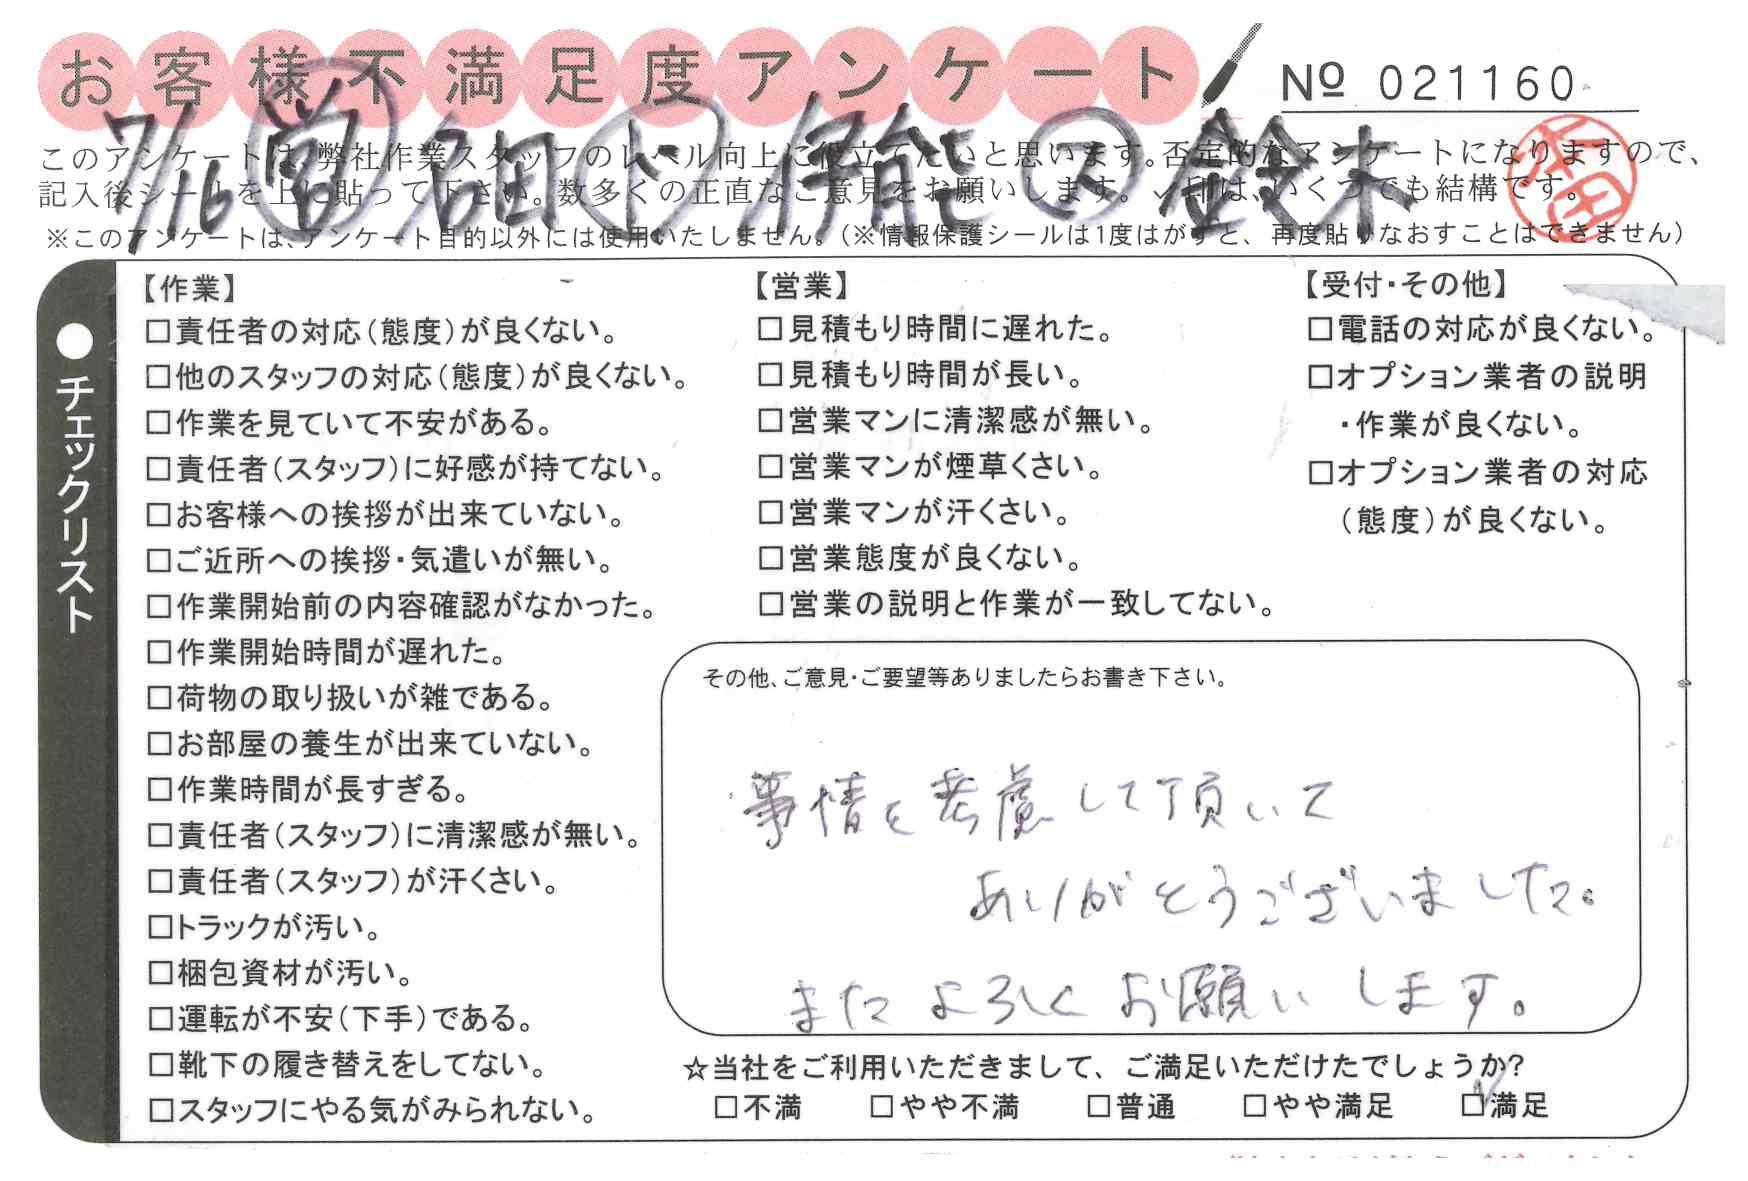 お客様不満足度アンケート
№ 021160
7/16 営 名田 ド 伊能 ス 鈴木
このアンケートは、弊社作業スタッフのレベル向上に役立てたいと思います。否定的なアンケートになりますので、
記入後シールを上に貼って下さい。数多くの正直なご意見をお願いします。✓印は、いくつでも結構です。
※このアンケートは、アンケート目的以外には使用いたしません。(※情報保護シールは1度はがすと、再度貼りなおすことはできません)
●チェックリスト
【作業】
□責任者の対応(態度)が良くない。
□他のスタッフの対応(態度)が良くない。
□作業を見ていて不安がある。
□責任者(スタッフ)に好感が持てない。
□お客様への挨拶が出来ていない。
□ご近所への挨拶・気遣いが無い。
□作業開始前の内容確認がなかった。
□作業開始時間が遅れた。
□荷物の取り扱いが雑である。
□お部屋の養生が出来ていない。
□作業時間が長すぎる。
□責任者(スタッフ)に清潔感が無い。
□責任者(スタッフ)が汗くさい。
□トラックが汚い。
□梱包資材が汚い。
□運転が不安(下手)である。
□靴下の履き替えをしてない。
□スタッフにやる気がみられない。
【営業】
□見積もり時間に遅れた。
□見積もり時間が長い。
□営業マンに清潔感が無い。
□営業マンが煙草くさい。
□営業マンが汗くさい。
□営業態度が良くない。
□営業の説明と作業が一致してない。
【受付・その他】
□電話の対応が良くない。
□オプション業者の説明
・作業が良くない。
□オプション業者の対応
(態度)が良くない。
その他、ご意見・ご要望等ありましたらお書き下さい。
事情を考慮して頂いて
ありがとうございました。
またよろしくお願いします。
☆当社をご利用いただきまして、ご満足いただけたでしょうか?
□不満 □やや不満 □普通 □やや満足 ☑満足